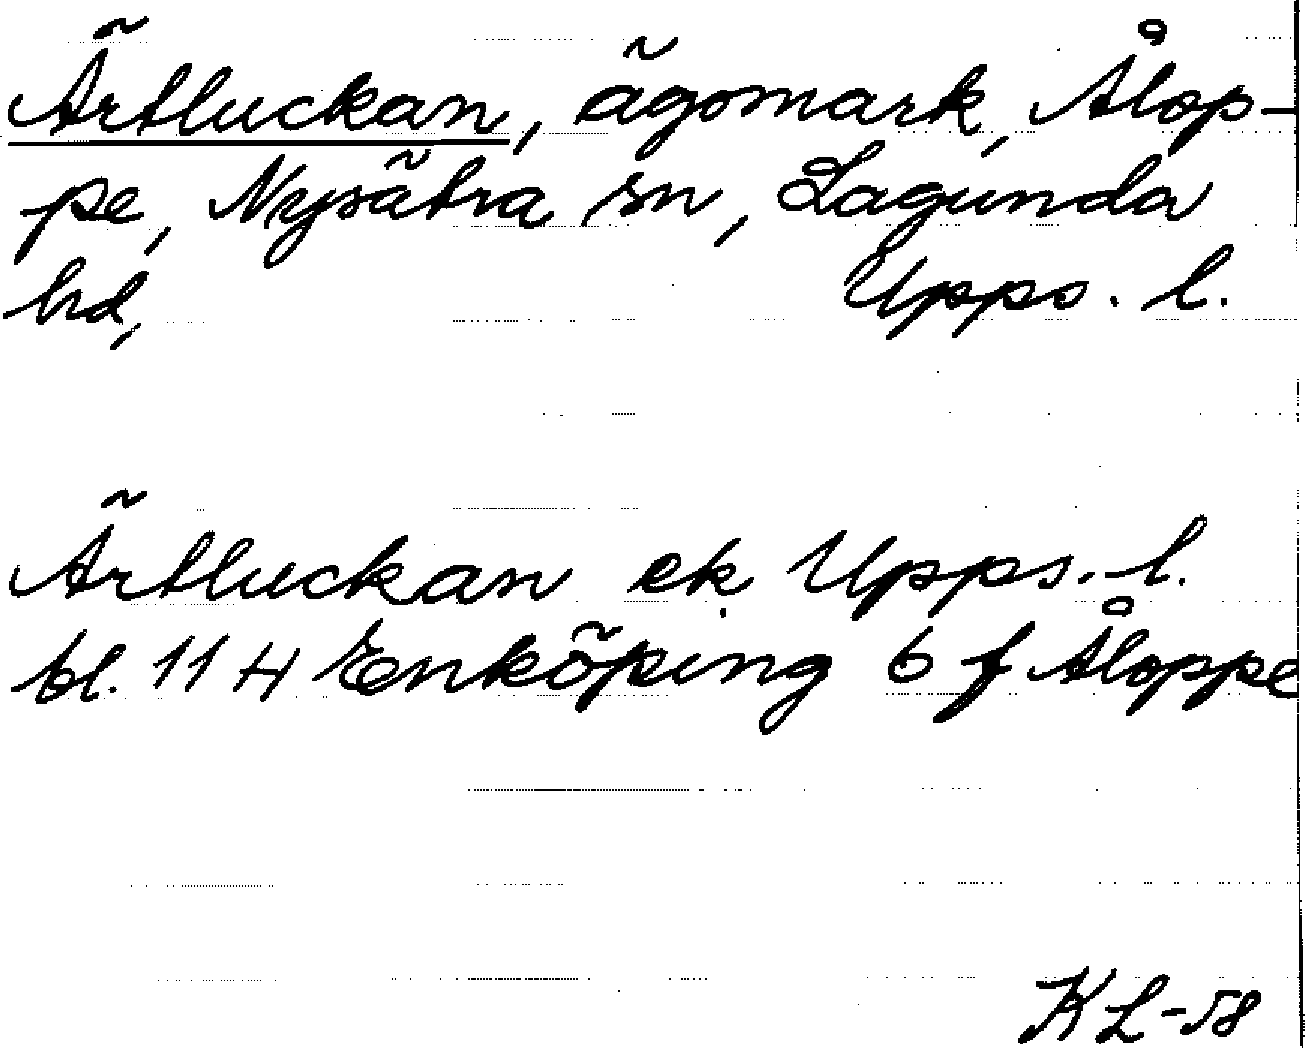 Ärtluckan, ägomark, Ålop-
pe, Nysätra sn, Lagunda
hd, Upps. l.
Ärtluckan ek. Upps.-l.
bl. 11 H Enköping 6 f Åloppe
KL-58